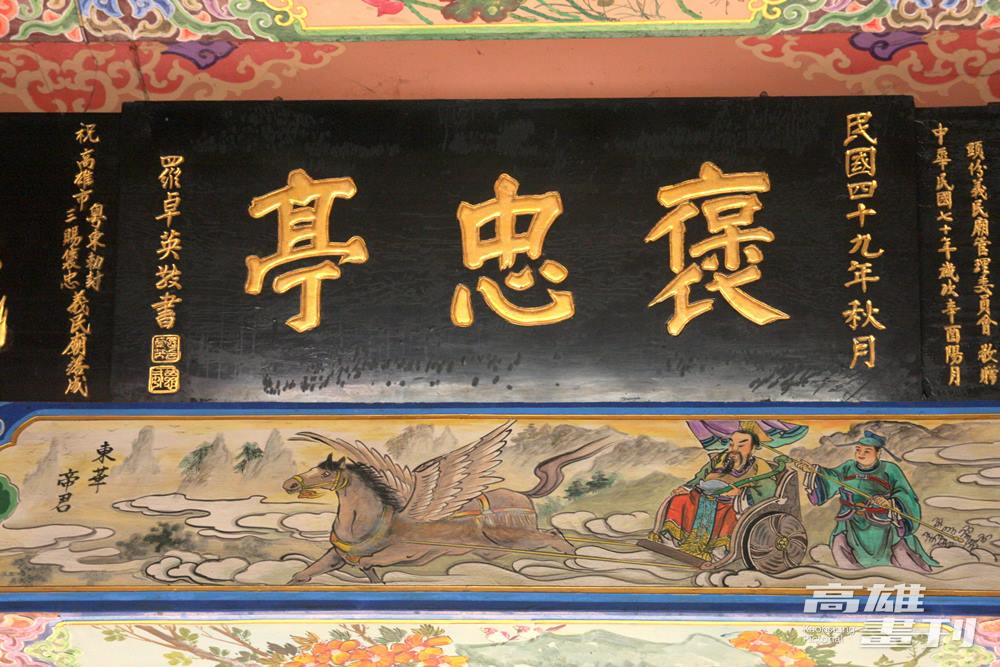 頭份義民廟管理委員會 敬贈
中華民國七十年歲次辛酉陽月
民國四十九年秋月
褒忠亭
羅卓英敬書
粵東勅封
祝 高雄市三賜褒忠義民廟落成
東華
帝君
高雄
畫刊
Kaohsiung
Pictorial